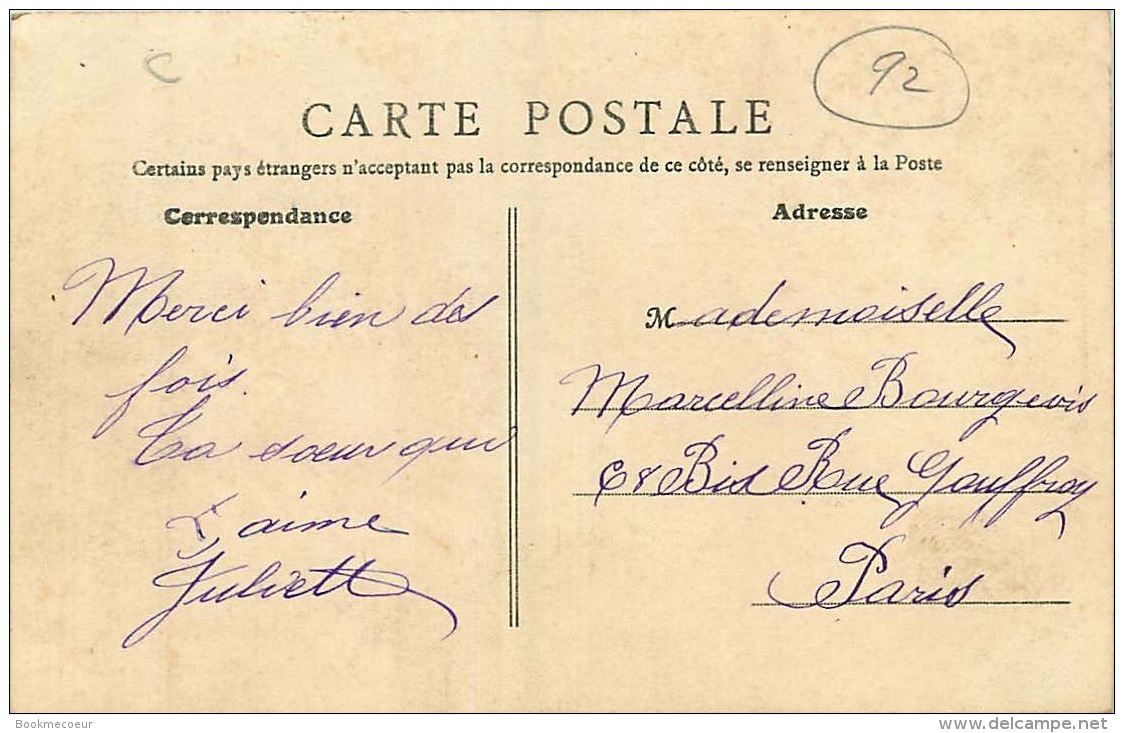 92
CARTE POSTALE
Certains pays étrangers n'acceptant pas la correspondance de ce côté, se renseigner à la Poste
Correspondance
Merci bien des
fois.
Ta soeur qui
t'aime
Juliette
Adresse
Mademoiselle
Marcelline Bourgeois
68 Bis Rue Gauffroy
Paris
Bookmecoeur
www.delcampe.net